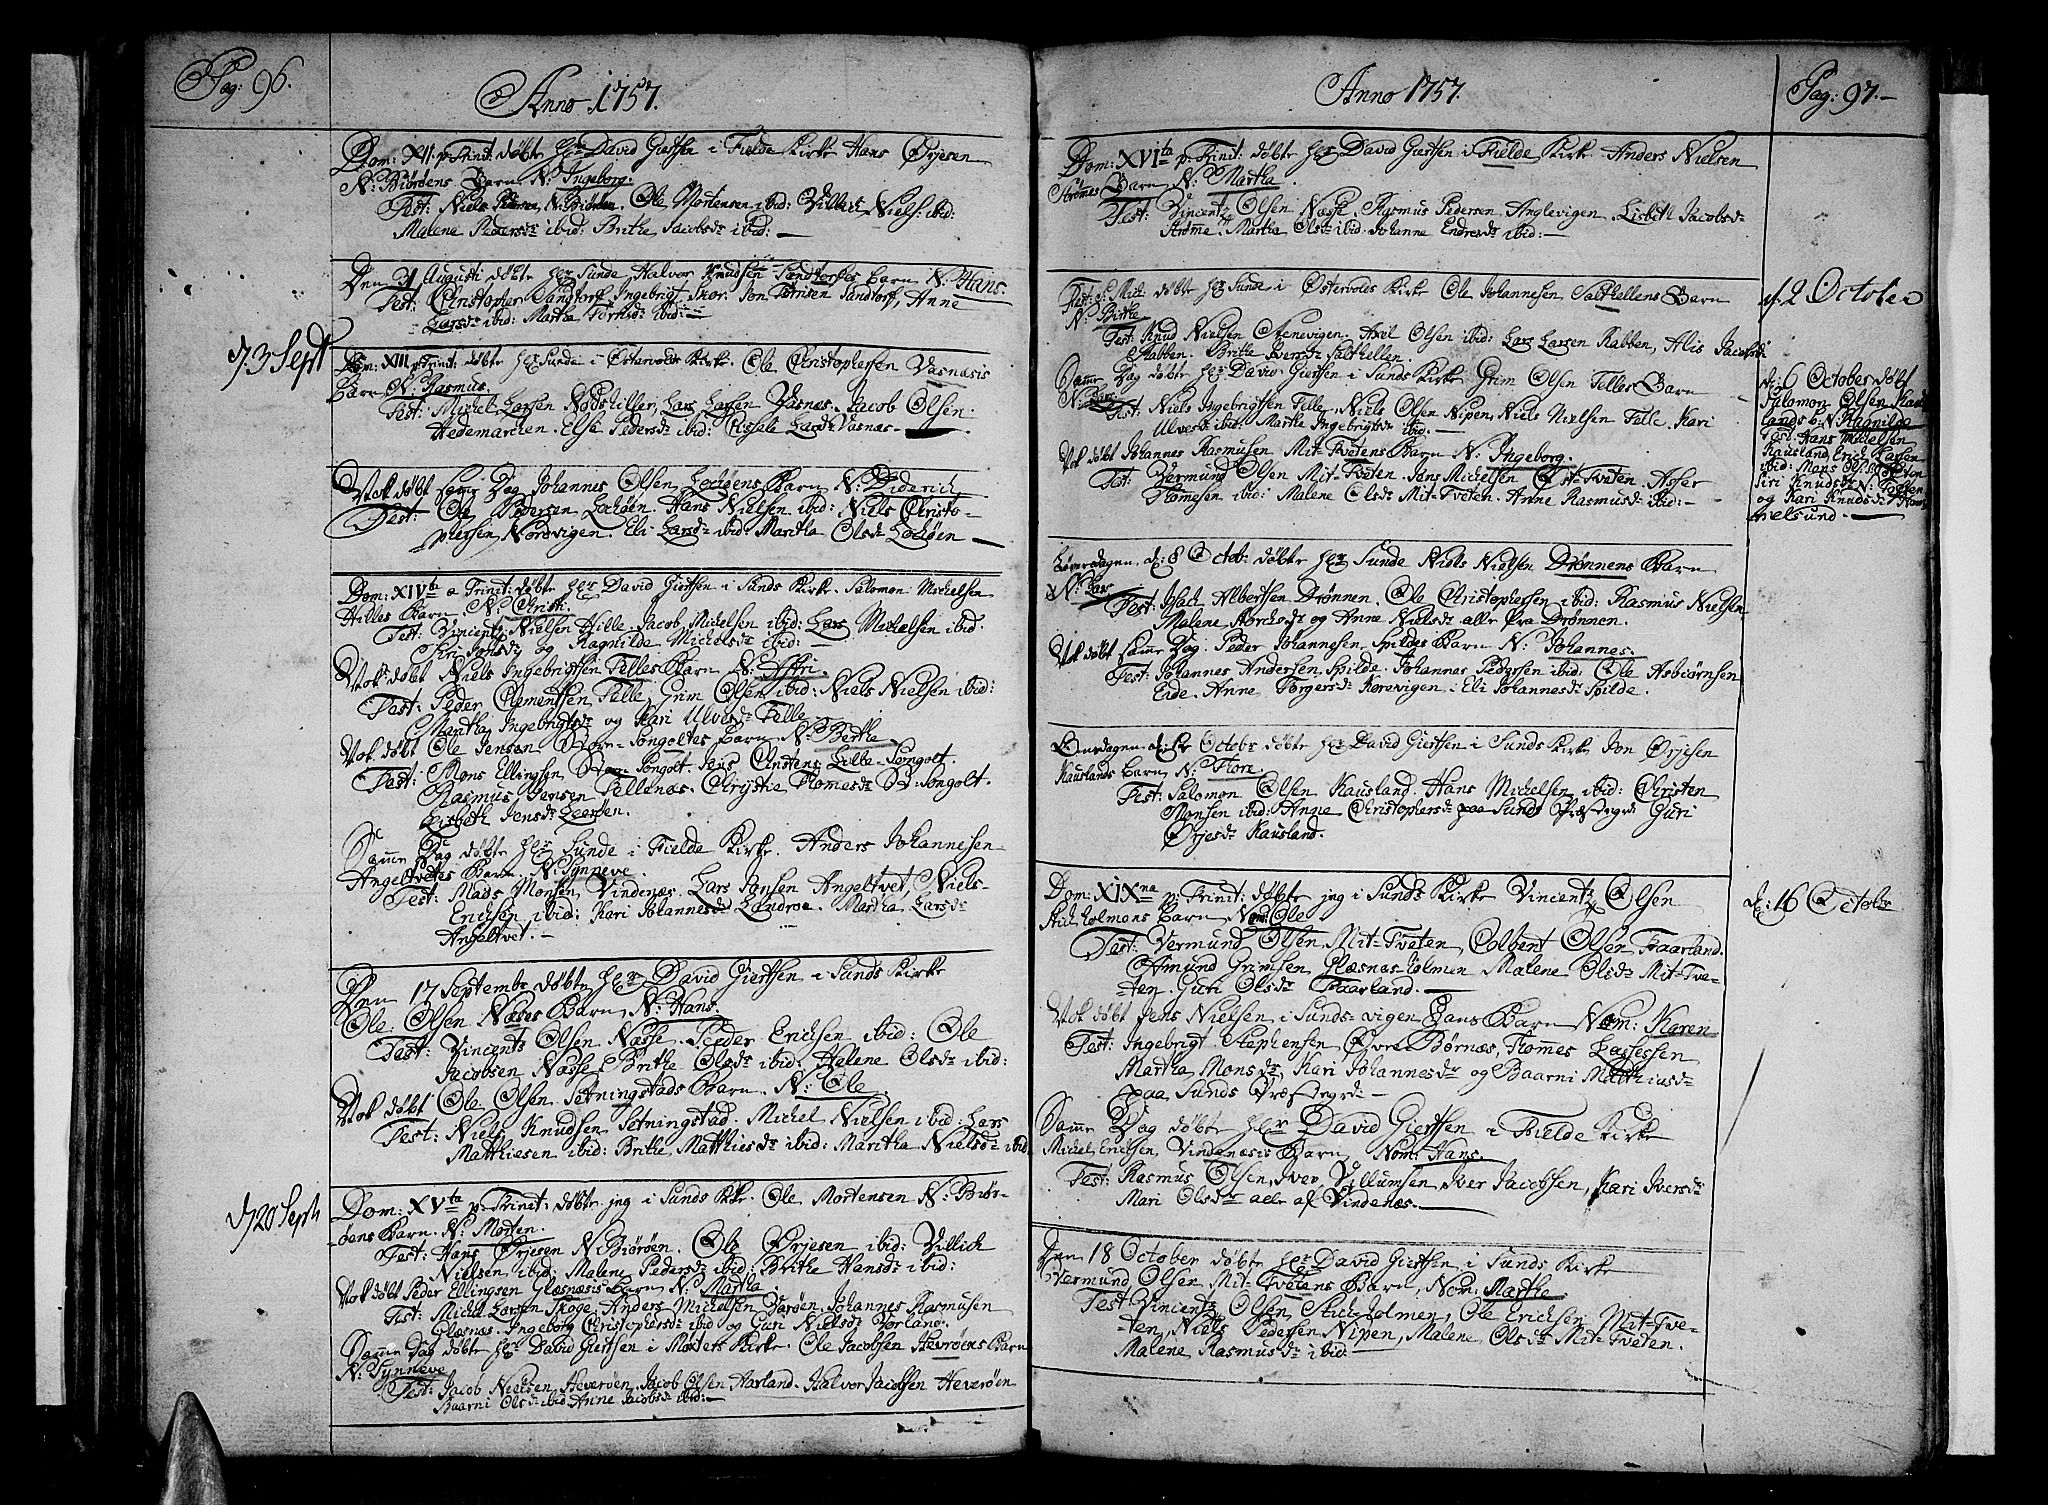 Pag: 96.
Anno 1757.
Dom: XII p Trinit: døbte Hr David Giertsen i Fielde Kirke Hans Ørjesen
N: Biørøens Barn N: Ingeborg.
Test: Niels Pedersen N: Biørøen. Ole Mortensen ibid: Villich Niels: ibid:
Malene Pedersdr ibid: Brithe Jacobsdr ibid:
Den 31 Augusti døbte Hr Sunde Halvor Knudsen Sandtorfes Barn N: Hans.
Test: Christopher Sangtorf, Ingebrigt Skor. Jon Sandtorf, Anne
Larsdr ibid: Martha ibid:
d. 3 Sept
Dom: XIII p Trinit: døbte Hr Sunde i Østervolds Kirke. Ole Christophersen Vasnæsis
Barn N: Rasmus.
Test: Michel Larsen Nodskiller, Lars Larsen Vasnæs. Jacob Olsen
Hedemarchen. Else Pedersdr ibid: Gissele Larsdr Vasnæs.
Nok døbt samme Dag Johannes Olsen Lochøens Barn N: Diderich
Test: Ole Pedersen Lochøen. Hans Nielsen ibid: Niels Christo-
phersen Nordvigen. Eli Larsdr ibid: Maritha Olsdr Lochøen
Dom: XIVta a Trinit: døbte Hr David Giertsen i Sunds Kirke. Salomon Michelsen
Hilles Barn N: Christi.
Test: Vincentz Nielsen Hille. Jacob Michelsen ibid: Lars Michelsen ibid.
Siri Jonsdr og Ragnilde Michelsdr ibid:
Nok døbt Niels Ingebrigtsen Telles Barn N: Affri.
Test: Peder Clementsen Telle, Grim Olsen ibid: Niels Nielsen ibid:
Martha Ingebrigtsdr og Kari Ulvesdr Telle
Nok døbt Ole Jensen Store-Songoltes Barn N: Berthe
Test: Mons Ellingsen Store Songolt. Jens Christens: Lille-Songolt.
Rasmus Jensen Tellenæs. Chrystie Thomesdr St: Songolt.
Lisbeth Jensdr Leerøen.
Samme Dag døbte Hr Sunde i Fielde Kirke. Anders Johannesen
Angeltvetes Barn. N: Synneve.
Test: Mads Monsen, Vindenæs. Lars Jansen Angeltvet, Niels-
Erichsen ibid: Kari Johannesdr Landroe. Martha Larsdr
Angeltvet.
Den 17 Septembr døbte Hr David Giertsen i Sunds Kirke
Ole Olsen Næses Barn N: Hans.
Test: Vincents Olsen Næsse. Peder Erichsen ibid: Ole
Jacobsen Næsse. Brithe Olsdr ibid: Helene Olsdr ibid:
Nok døbt Ole Olsen Setningstads Barn. N: Ole.
Test: Niels Knudsen Setningstad. Michel Nielsen ibid. Lars
Matthiesen ibid: Brithe Matthiesdr ibid: Maritha Nielsdr ibid
d. 20 Septr
Dom: XVta p: Trinit: døbte jeg i Sunds Kirke. Ole Mortensen N: Biør-
øens Barn. N: Morten.
Test: Hans Ørjesen N: Biørøen. Ole Ørjesen ibid: Villich
Nielsen ibid: Malene Pedersdr ibid: Brithe Hansdr ibid:
Nok døbt Peder Ellingsen Glesnæsis Barn N: Martha
Test: Michel Larsen Skoge. Anders Michelsen Barøen. Johannes Rasmusen
Glæsnæs. Ingeborg Christophersdr ibid og Guri Nielsdr Vorland.
Samme dag døbte Hr David Giertsen i Møxters Kirke. Ole Jacobsen Heverøens Barn
N: Synneve
Test: Jacob Nielsen Heverøen. Jacob Olsen Harland. Halvor Jacobsen Heverøen
Baarni Olsdr ibid Anne Jacobsdr ibid:
Anno 1757.
Pag: 97.
Dom: XVIta p: Trinit: døbte Hr David Giertsen i Fielde Kirke Anders Nielsen
Strømes Barn N: Martha.
Test: Vincentz Olsen Næsse. Rasmus Pedersen Anglevigen. Lisbeth Jacobsdr
Strømme. Martha Olsdr ibid. Johanne Endresdr ibid:
d. 2 October
Fest: S: Mich døbte Hr Sunde i Østervolds Kirke Ole Johannesen Salthellens Barn
N: Birthe
Test: Knud Nielsen Stenevigen. Axel Olsen ibid: Lars Larsen Rabben, Alis Jacobsdr
Rabben. Brithe Iversdr Salthellen.
Samme Dag døbte Hr David Giertsen i Sunds Kirke Grim Olsen Telles Barn
N:
Test: Niels Ingebrigtsen Telle. Niels Olsen Nipen. Niels Nielsen Telle. Kari
Ulvesdr ibid: Martha Ingebrigtsdr ibid.
Nok døbt Johannes Rasmusen Mit-Tvetens Barn N: Ingeborg.
Test: Vermund Olsen Mit-Tveten. Jens Michelsen Øst-Tveten. Asser
Thomesen ibid: Malene Olsdr Mit-Tveten. Anne Rasmusdr ibid:
d: 6 October døbt
Salomon Olsen Kaus-
lands b: N: Ragnilde
Test: Hans Michelsen
Kausland Erich Larsen
ibid: Mons
Siri Knudsdr
og Kari Knudsdr
melsund
Løverdagen d: 8 Octob: døbte Hr Sunde Niels Nielsen Drønnens Barn
N: Lars
Test: Isach Albertsen Drønnen. Ole Christophersen ibid: Rasmus Nielsen,
Malene og Anne Nielsdr alle fra Drønnen.
Nok døbt samme Dag. Peder Johannesen Spildes Barn N: Johannes.
Test: Johannes Andersen Spilde. Johannes Pedersen ibid: Ole Asbiørnsen
Eide. Anne Torgersdr Korevigen. Eli Johannesdr Spilde.
Onsdagen d: Octobr døbte Hr David Giertsen i Sunds Kirke Jon Ørjesen
Kauslands Barn, N: Thore.
Test: Salomon Olsen Kausland. Hans Michelsen ibid: Christen
Monsen ibid: Anne Christophersdr paa Sunds Præstegrd Guri
Ørjesdr Kausland.
d: 16 Octobr
Dom: XIXna p: Trinit: døbte jeg i Sunds Kirke Vincentz Olsen
Stichholmens Barn Nom: Ole
Test: Vermund Olsen Mit-Tveten, Colbent Olsen Taarland.
Amund Grimsen Glæsnæsholmen Malene Olsdr Mit-Tve-
ten. Guri Olsdr Taarland.
Nok døbt Jens Nielsen i Sunds-vigen Hans Barn Nom: Karen
Test: Ingebrigt Stephensen Øvre Børnæs, Thommes Lassessen
Martha Monsdr, Kari Johannesdr og Baarni Matthiasdr
paa Sunds Præstegrd:
Samme Dag døbte Hr David Giertsen i Fielde Kirke
Michel Erichsen, Vindenæsis Barn, Nom: Hans.
Test: Rasmus Olsen, Iver Villumsen, Iver Jacobsen, Kari Iversdr
Mari Olsdr alle af Vindenæs.
Den 18 October døbte Hr David Giertsen i Sunds Kirke
Vermund Olsen Mit-Tvetens Barn, Nom: Marthe
Test Vincentz Olsen Stichholmen, Ole Erichsen Mit-Tve-
ten, Niels Pedersen Nipen, Malene Olsdr Mit-Tveten.
Malene Rasmusdr ibid: